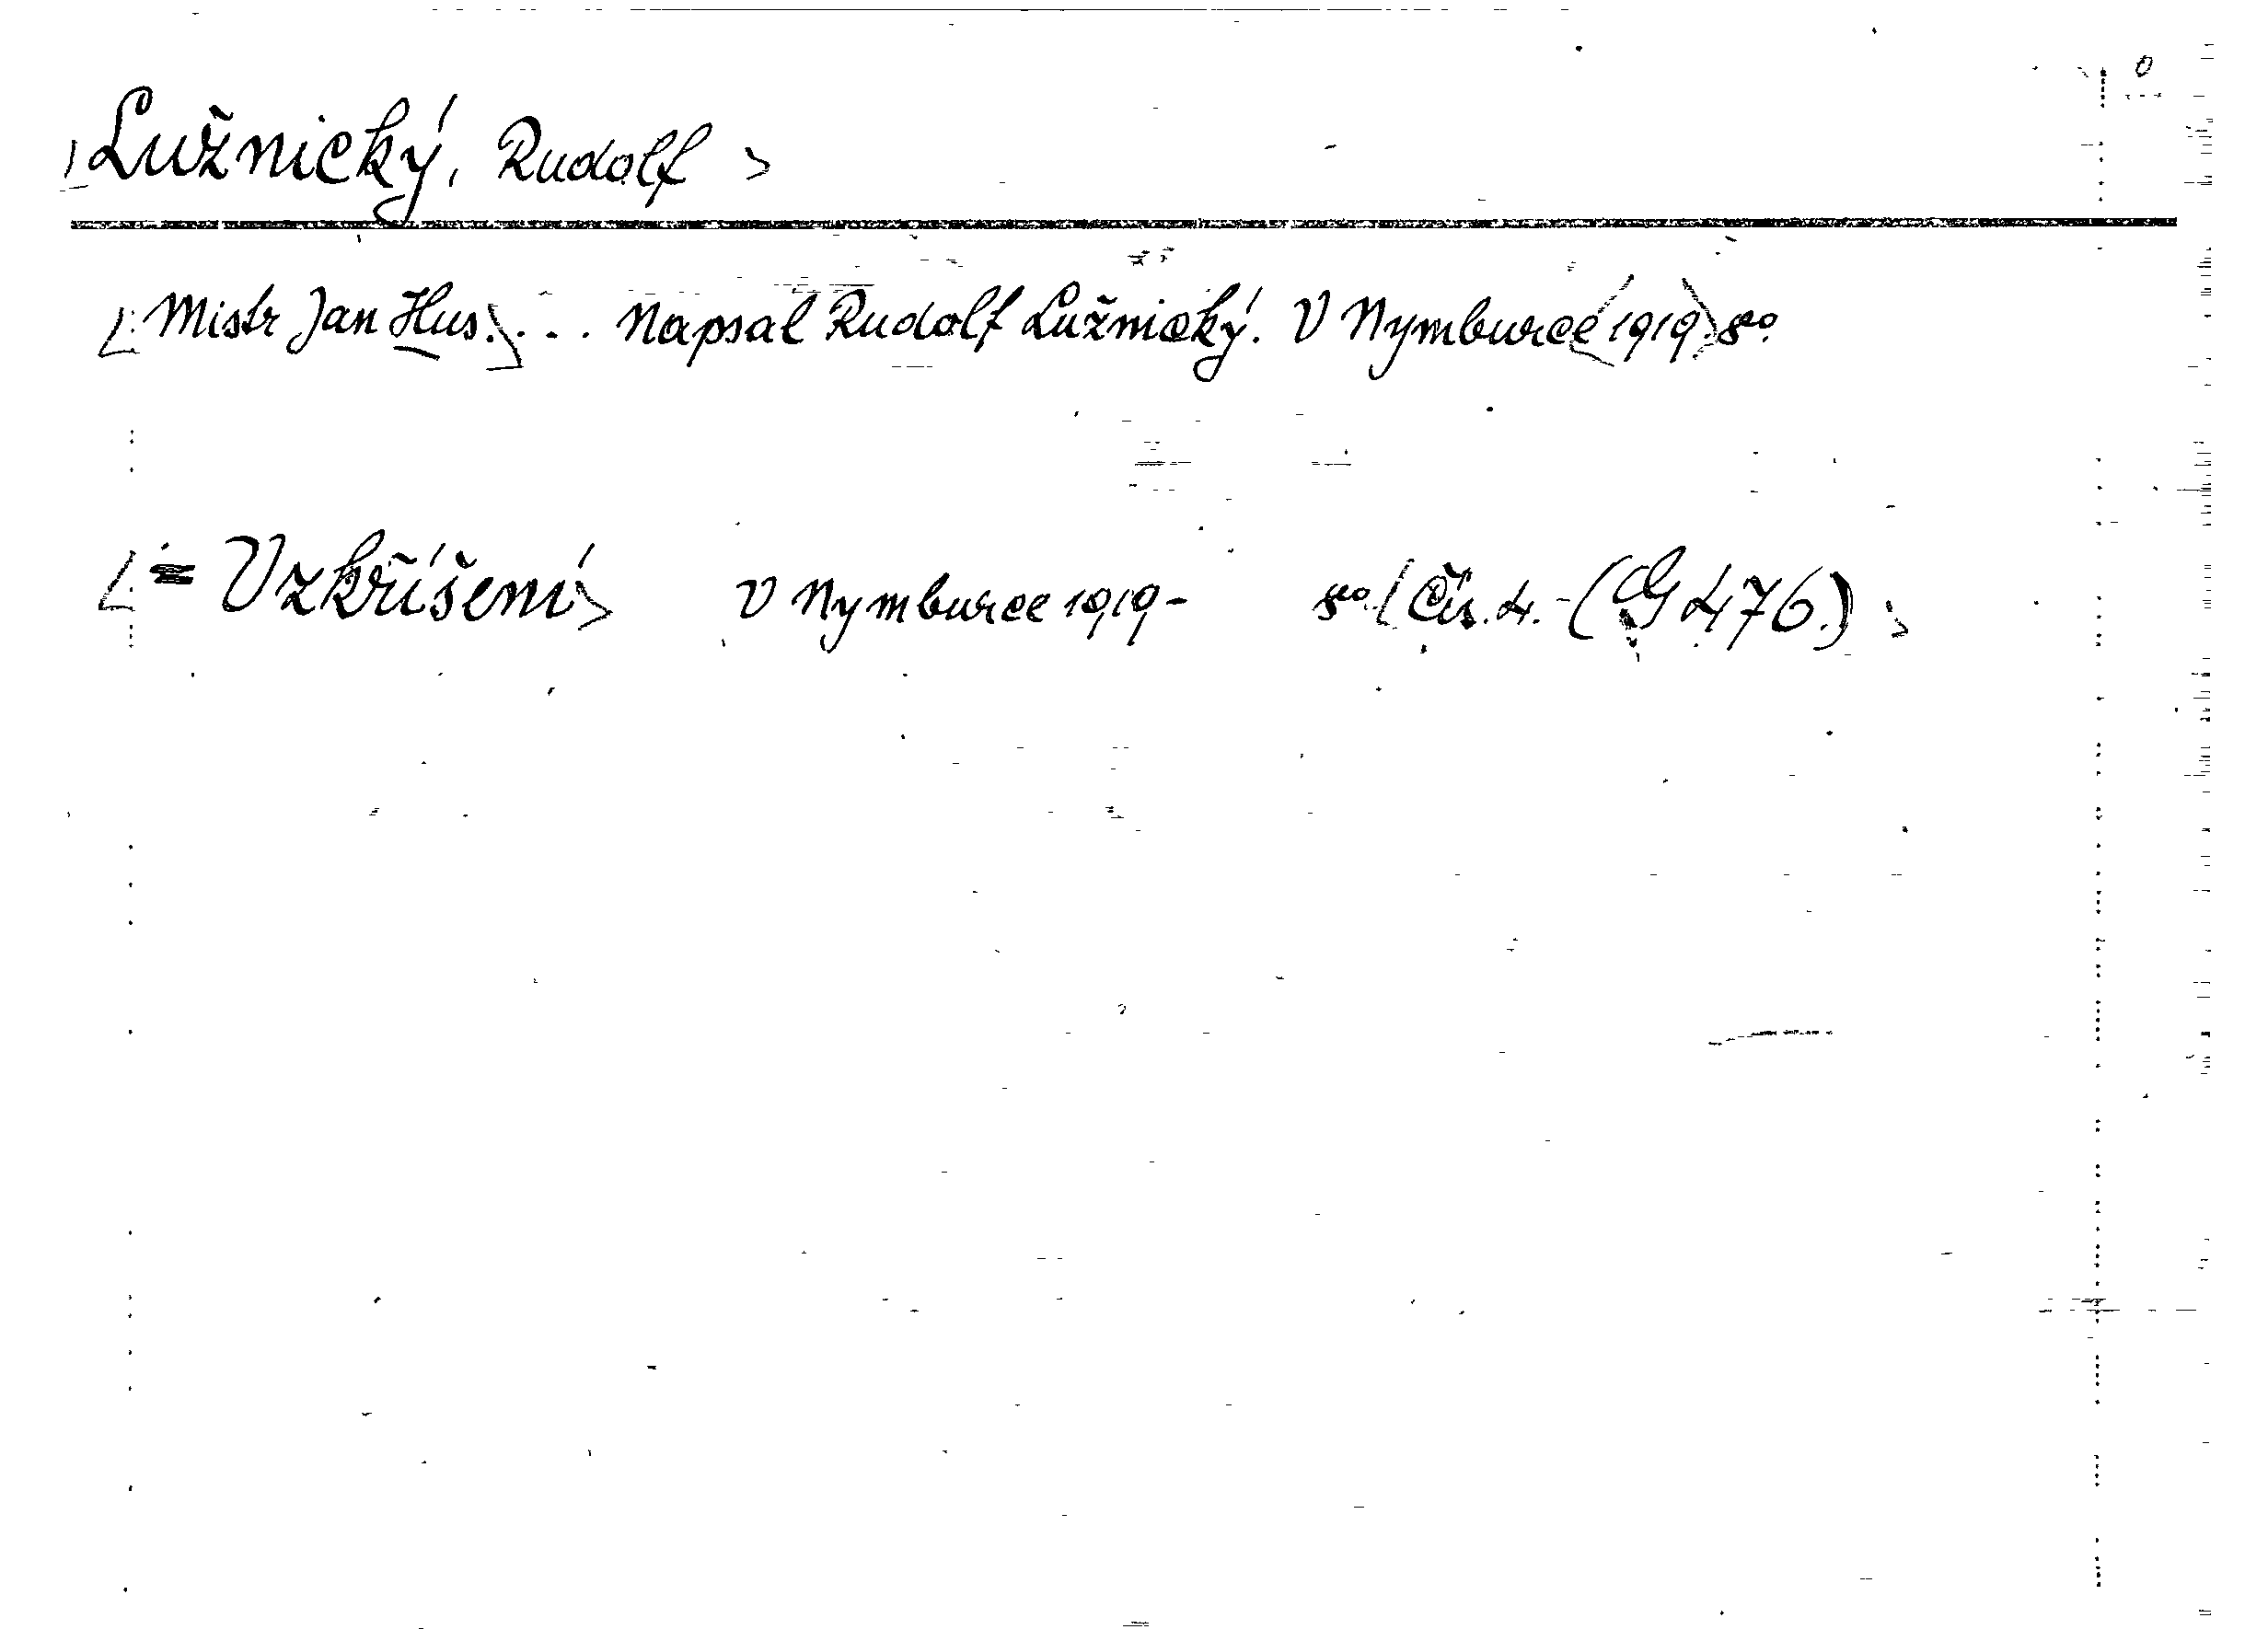 Lužnický, Rudolf
Mistr Jan Hus. ... Napsal Rudolf Lužnický. V Nymburce 1919. 8º.
= Vzkříšení V Nymburce 1919- 8º. Čís. 4. - (G 476.)